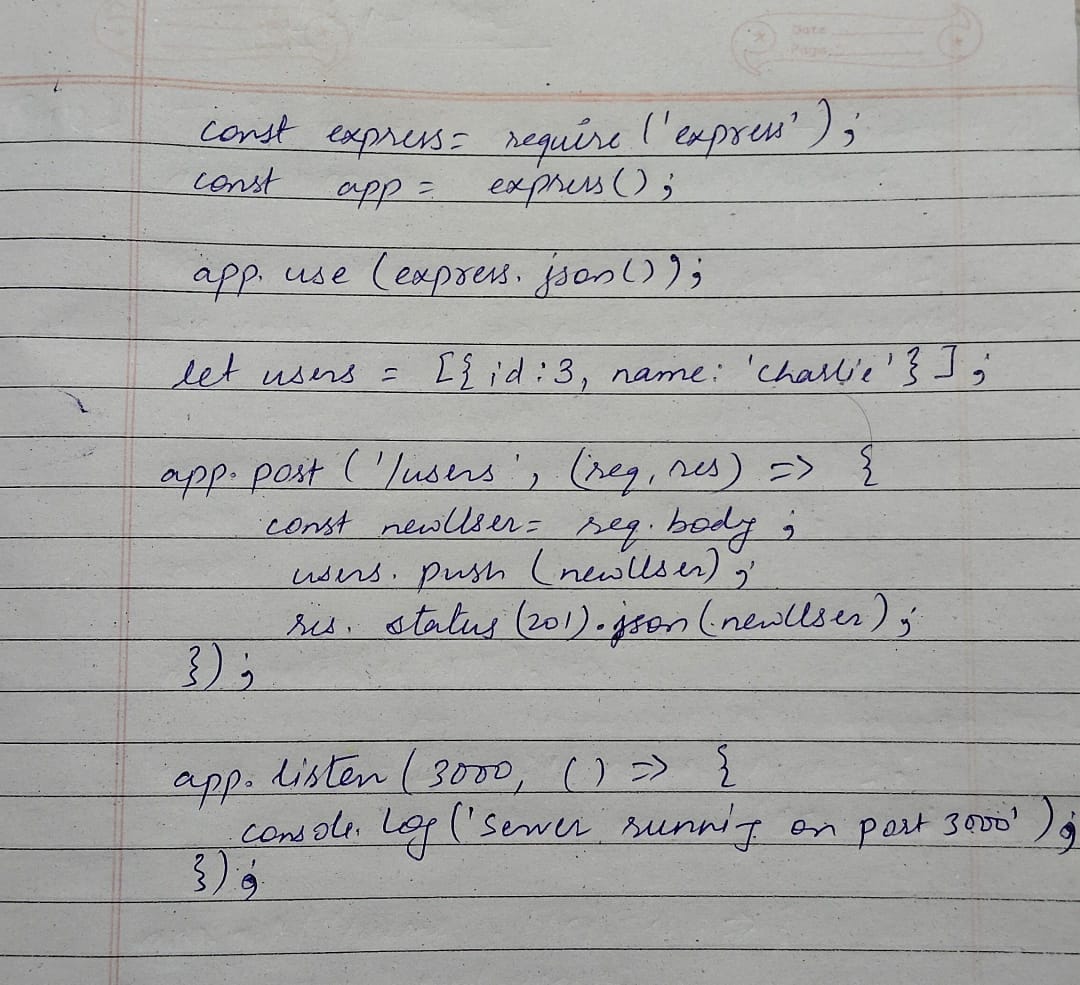 Date
Page
const express = require('express');
const app = express();
app.use(express.json());
let users = [{id:3, name: 'charlie'}];
app.post('/users', (req, res) => {
const newUser = req.body;
users.push(newUser);
res.status(201).json(newUser);
});
app.listen(3000, () => {
console.log('Server running on port 3000');
});